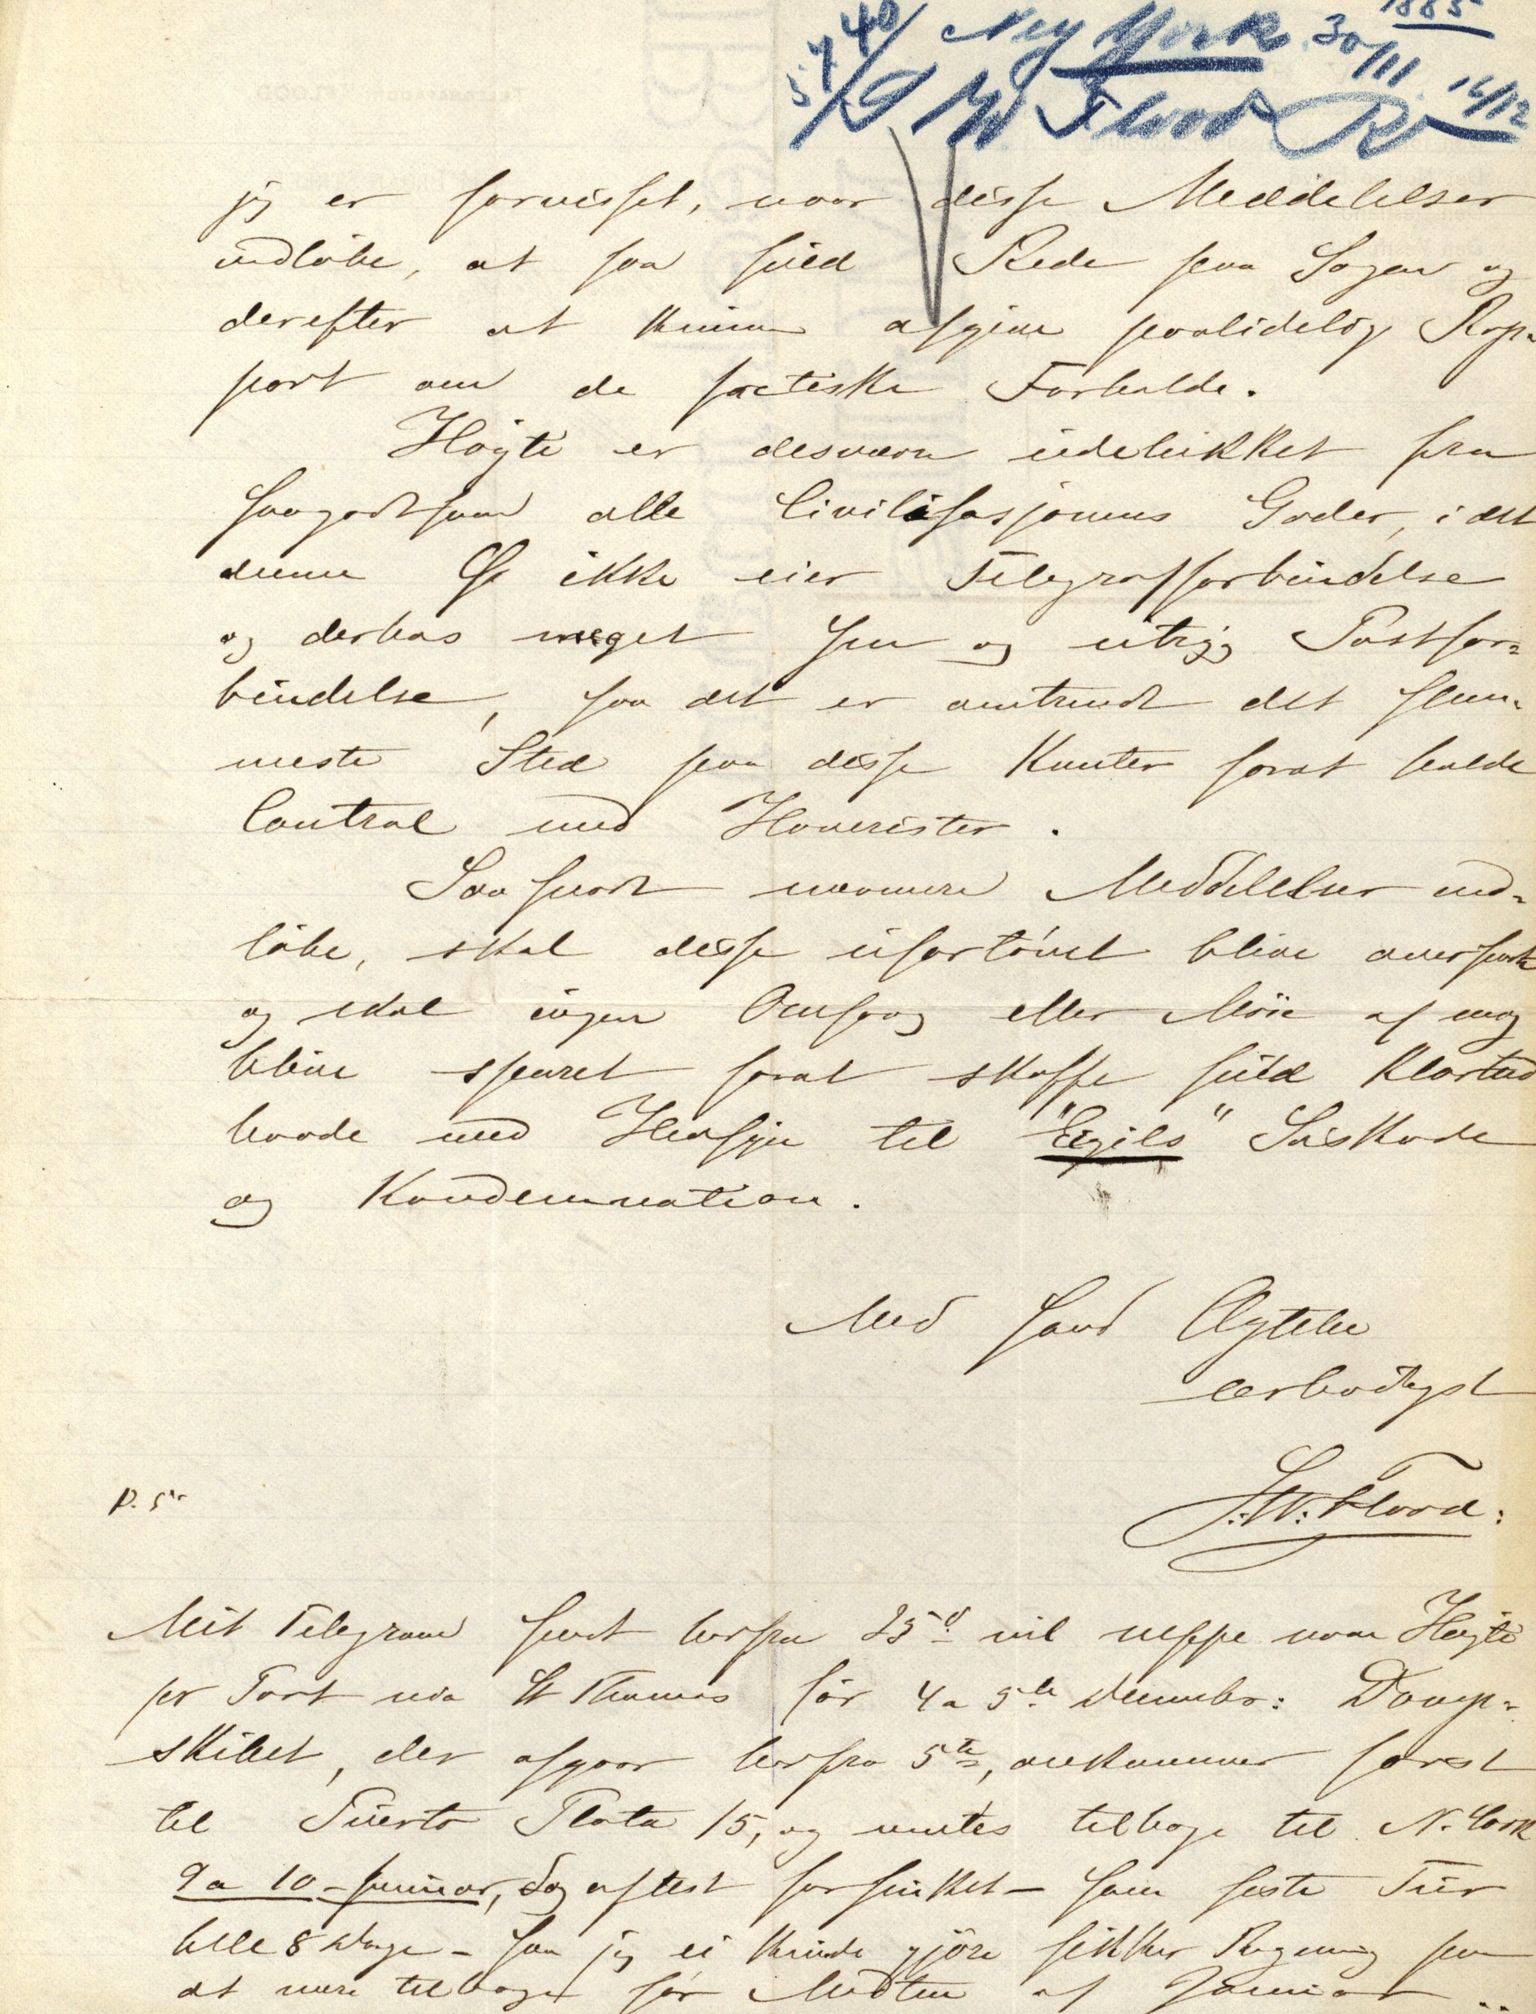 1885
5/7 40/ New York 30/11 16/12
W Flood
jeg er forvisset, naar disse Meddelelser
indløbe, at faa fuld Rede paa Sagen og
derefter at kunne afgive paalidelig Rap-
port om de factiske Forholde.
Hayti er desværre udelukket fra
saagodtsom alle Civilisasjonens Goder, i det
denne Ø ikke eier Telegrafforbindelse
og derhos meget sen og utryg Postfor-
bindelse, saa det er omtrendt det slem-
meste Sted paa disse Kanter forat holde
Control med Havarister.
Saasnart nærmere Meddelelser ind-
løbe, skal disse ufortøvet blive oversendt
og skal ingen Omsorg eller Møie af mig
blive sparet forat skaffe fuld Klarhed
baade med Hensyn til "Egils" Søskade
og Kondemnation.
Med sand Agtelse
ærbødigst
S. W. Flood.
P. S.
Mit Telegram sendt herfra 25d. vil neppe naa Hayti
pr Post via St Thomas før 4 a 5te December: Damp-
skibet, der afgaar herfra 5te, ankommer først
til Puerto Plata 15, og ventes tilbage til N. York
9 a 10 Januar, dog oftest forsinket – som siste Tur
hele 8 Dage – saa jeg ei kunde gjöre sikker Regning paa
at være tilbage før Midten af Januar